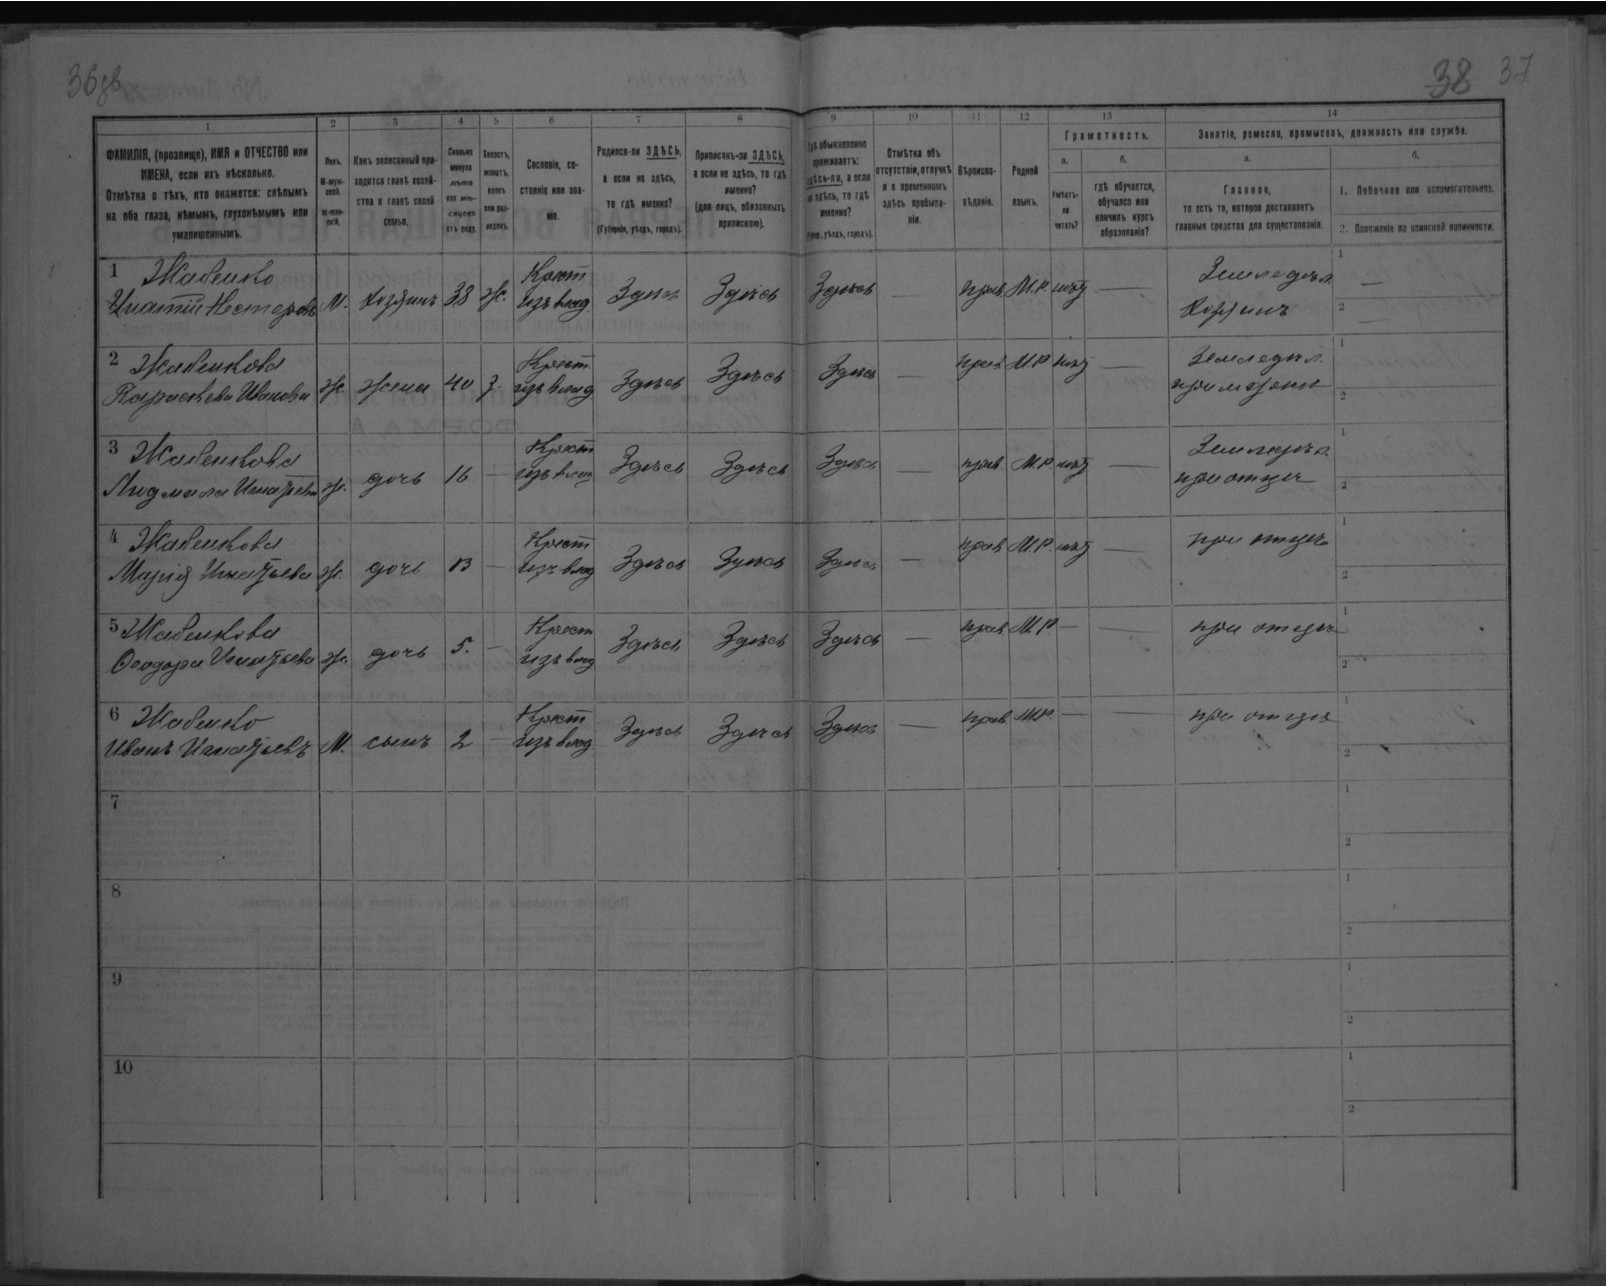 36об
38 37
1
2
3
4
5
6
7
8
9
10
11
12
13
14
ФАМИЛІЯ, (прозвище), ИМЯ и ОТЧЕСТВО или
ИМЕНА, если ихъ нѣсколько.
Отмѣтка о тѣхъ, кто окажется: слѣпымъ
на оба глаза, нѣмымъ, глухонѣмымъ или
умалишеннымъ.
Полъ.
М-муж-
ской.
Ж-жен-
скій.
Какъ записанный при-
ходится главѣ хозяй-
ства и главѣ своей
семьи.
Сколько
минуло
лѣтъ
или мѣся-
цевъ
отъ роду.
Холостъ,
женатъ,
вдовъ
или раз-
веденъ.
Сословіе, со-
стояніе или зва-
ніе.
Родился-ли ЗДѢСЬ,
а если не здѣсь,
то гдѣ именно?
(Губернія, уѣздъ, городъ).
Приписанъ-ли ЗДѢСЬ,
а если не здѣсь, то гдѣ
именно?
(для лицъ, обязанныхъ
припискою).
Гдѣ обыкновенно
проживаетъ:
здѣсь-ли, а если
не здѣсь, то гдѣ
именно?
(Губ., уѣздъ, городъ).
Отмѣтка объ
отсутствіи, отлучкѣ
и о временномъ
здѣсь пребыва-
ніи.
Вѣроиспо-
вѣданіе.
Родной
языкъ.
Грамотность.
а.
Умѣетъ-
ли
читать?
б.
гдѣ обучается,
обучался или
кончилъ курсъ
образованія?
Занятіе, ремесло, промыселъ, должность или служба.
а.
Главное,
то есть то, которое доставляетъ
главныя средства для существованія.
б.
1. Побочное или вспомогательное.
2. Положеніе по воинской повинности.
1 Жабенко
Игнатій Нестеровъ М. хозяинъ 38 ж. Крест изъ влад Здѣсь Здѣсь Здѣсь — прав М.Р. нѣт — Земледѣл Хозяинъ 1 — 2 —
2 Жабенкова
Параскева Иванова ж. жена 40 з. Крест изъ влад Здѣсь Здѣсь Здѣсь — прав М.Р. нѣт — Земледѣл. при мужѣ 1 2
3 Жабенкова
Людмила Игнатьева ж. дочь 16 — Крест изъ влад Здѣсь Здѣсь Здѣсь — прав М.Р. нѣт — Земледѣл при отцѣ 1 2
4 Жабенкова
Марія Игнатьева ж. дочь 13 — Крест изъ влад Здѣсь Здѣсь Здѣсь — прав М.Р. нѣт — при отцѣ 1 2
5 Жабенкова
Феодора Игнатьева ж. дочь 5. — Крест изъ влад Здѣсь Здѣсь Здѣсь — прав М.Р. — — при отцѣ 1 2
6 Жабенко
Иванъ Игнатьевъ М. сынъ 2 — Крест изъ влад Здѣсь Здѣсь Здѣсь — прав М.Р. — — при отцѣ 1 2
7 1 2
8 1 2
9 1 2
10 1 2